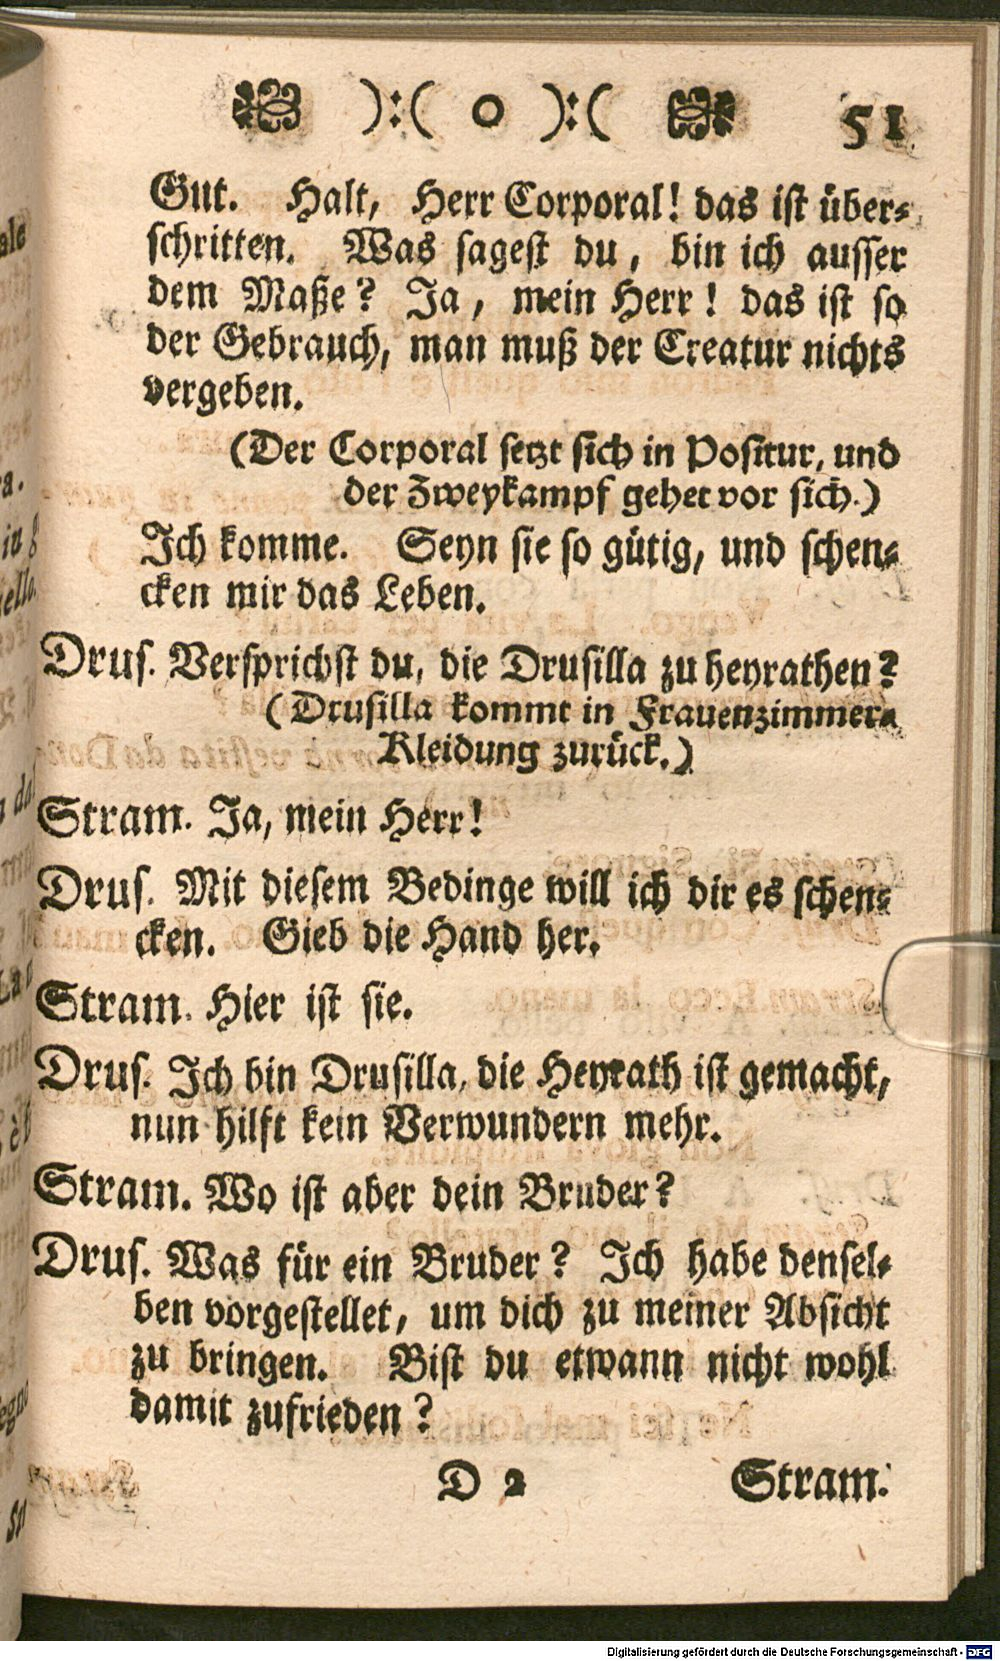 ):( o ):( 51
Gut. Halt, Herr Corporal! das ist über-
schritten. Was sagest du, bin ich ausser
dem Maße? Ja, mein Herr! das ist so
der Gebrauch, man muß der Creatur nichts
vergeben.
(Der Corporal setzt sich in Positur, und
der Zweykampf gehet vor sich.)
Ich komme. Seyn sie so gütig, und schen-
cken mir das Leben.
Drus. Versprichst du, die Drusilla zu heyrathen?
(Drusilla kommt in Frauenzimmer-
Kleidung zurück.)
Stram. Ja, mein Herr!
Drus. Mit diesem Bedinge will ich dir es schen-
cken. Gieb die Hand her.
Stram. Hier ist sie.
Drus. Ich bin Drusilla, die Heyrath ist gemacht,
nun hilft kein Verwundern mehr.
Stram. Wo ist aber dein Bruder?
Drus. Was für ein Bruder? Ich habe densel-
ben vorgestellet, um dich zu meiner Absicht
zu bringen. Bist du etwann nicht wohl
damit zufrieden?
D 2 Stram.
Digitalisierung gefördert durch die Deutsche Forschungsgemeinschaft - DFG